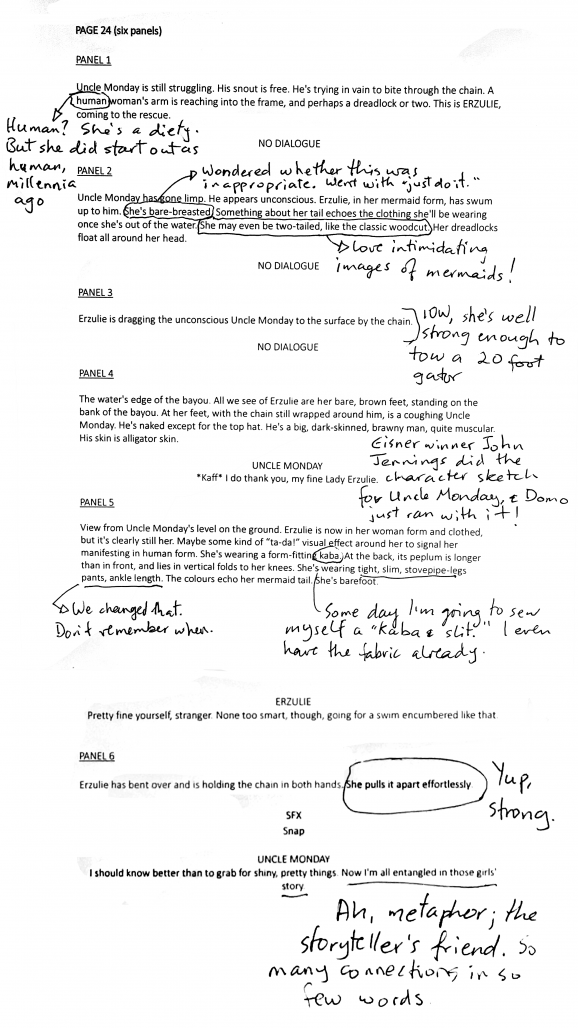 PAGE 24 (six panels)
PANEL 1
Uncle Monday is still struggling. His snout is free. He's trying in vain to bite through the chain. A
human woman's arm is reaching into the frame, and perhaps a dreadlock or two. This is ERZULIE,
coming to the rescue.
Human? She's a diety.
But she did start out as
human,
millennia
ago
NO DIALOGUE
PANEL 2
Wondered whether this was
inappropriate. Went with "just do it."
Uncle Monday has gone limp. He appears unconscious. Erzulie, in her mermaid form, has swum
up to him. She's bare-breasted. Something about her tail echoes the clothing she'll be wearing
once she's out of the water. She may even be two-tailed, like the classic woodcut. Her dreadlocks
float all around her head.
Love intimidating
images of mermaids!
NO DIALOGUE
PANEL 3
Erzulie is dragging the unconscious Uncle Monday to the surface by the chain.
IOW, she's well
strong enough to
tow a 20 foot
gator
NO DIALOGUE
PANEL 4
The water's edge of the bayou. All we see of Erzulie are her bare, brown feet, standing on the
bank of the bayou. At her feet, with the chain still wrapped around him, is a coughing Uncle
Monday. He's naked except for the top hat. He's a big, dark-skinned, brawny man, quite muscular.
His skin is alligator skin.
Eisner winner John
Jennings did the
character sketch
for Uncle Monday, & Domo
just ran with it!
UNCLE MONDAY
*Kaff* I do thank you, my fine Lady Erzulie.
PANEL 5
View from Uncle Monday's level on the ground. Erzulie is now in her woman form and clothed,
but it's clearly still her. Maybe some kind of "ta-da!" visual effect around her to signal her
manifesting in human form. She's wearing a form-fitting kaba. At the back, its peplum is longer
than in front, and lies in vertical folds to her knees. She's wearing tight, slim, stovepipe-legs
pants, ankle length. The colours echo her mermaid tail. She's barefoot.
We changed that.
Don't remember when.
Some day I'm going to sew
myself a "kaba & slit." I even
have the fabric already.
ERZULIE
Pretty fine yourself, stranger. None too smart, though, going for a swim encumbered like that
PANEL 6
Erzulie has bent over and is holding the chain in both hands. She pulls it apart effortlessly
Yup,
strong.
SFX
Snap
UNCLE MONDAY
I should know better than to grab for shiny, pretty things. Now I'm all entangled in those girls'
story.
Ah, metaphor; the
storyteller's friend. So
many connections in so
few words.